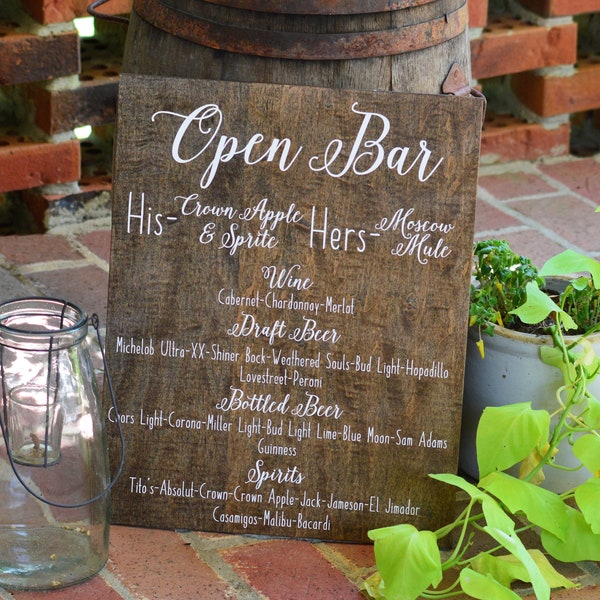 Open Bar
His- Crown Apple & Sprite
Hers- Moscow Mule
Wine
Cabernet-Chardonnay-Merlot
Draft Beer
Michelob Ultra-XX-Shiner Bock-Weathered Souls-Bud Light-Hopadillo
Lovestreet-Peroni
Bottled Beer
Coors Light-Corona-Miller Light-Bud Light Lime-Blue Moon-Sam Adams
Guinness
Spirits
Tito's-Absolut-Crown-Crown Apple-Jack-Jameson-El Jimador
Casamigos-Malibu-Bacardi